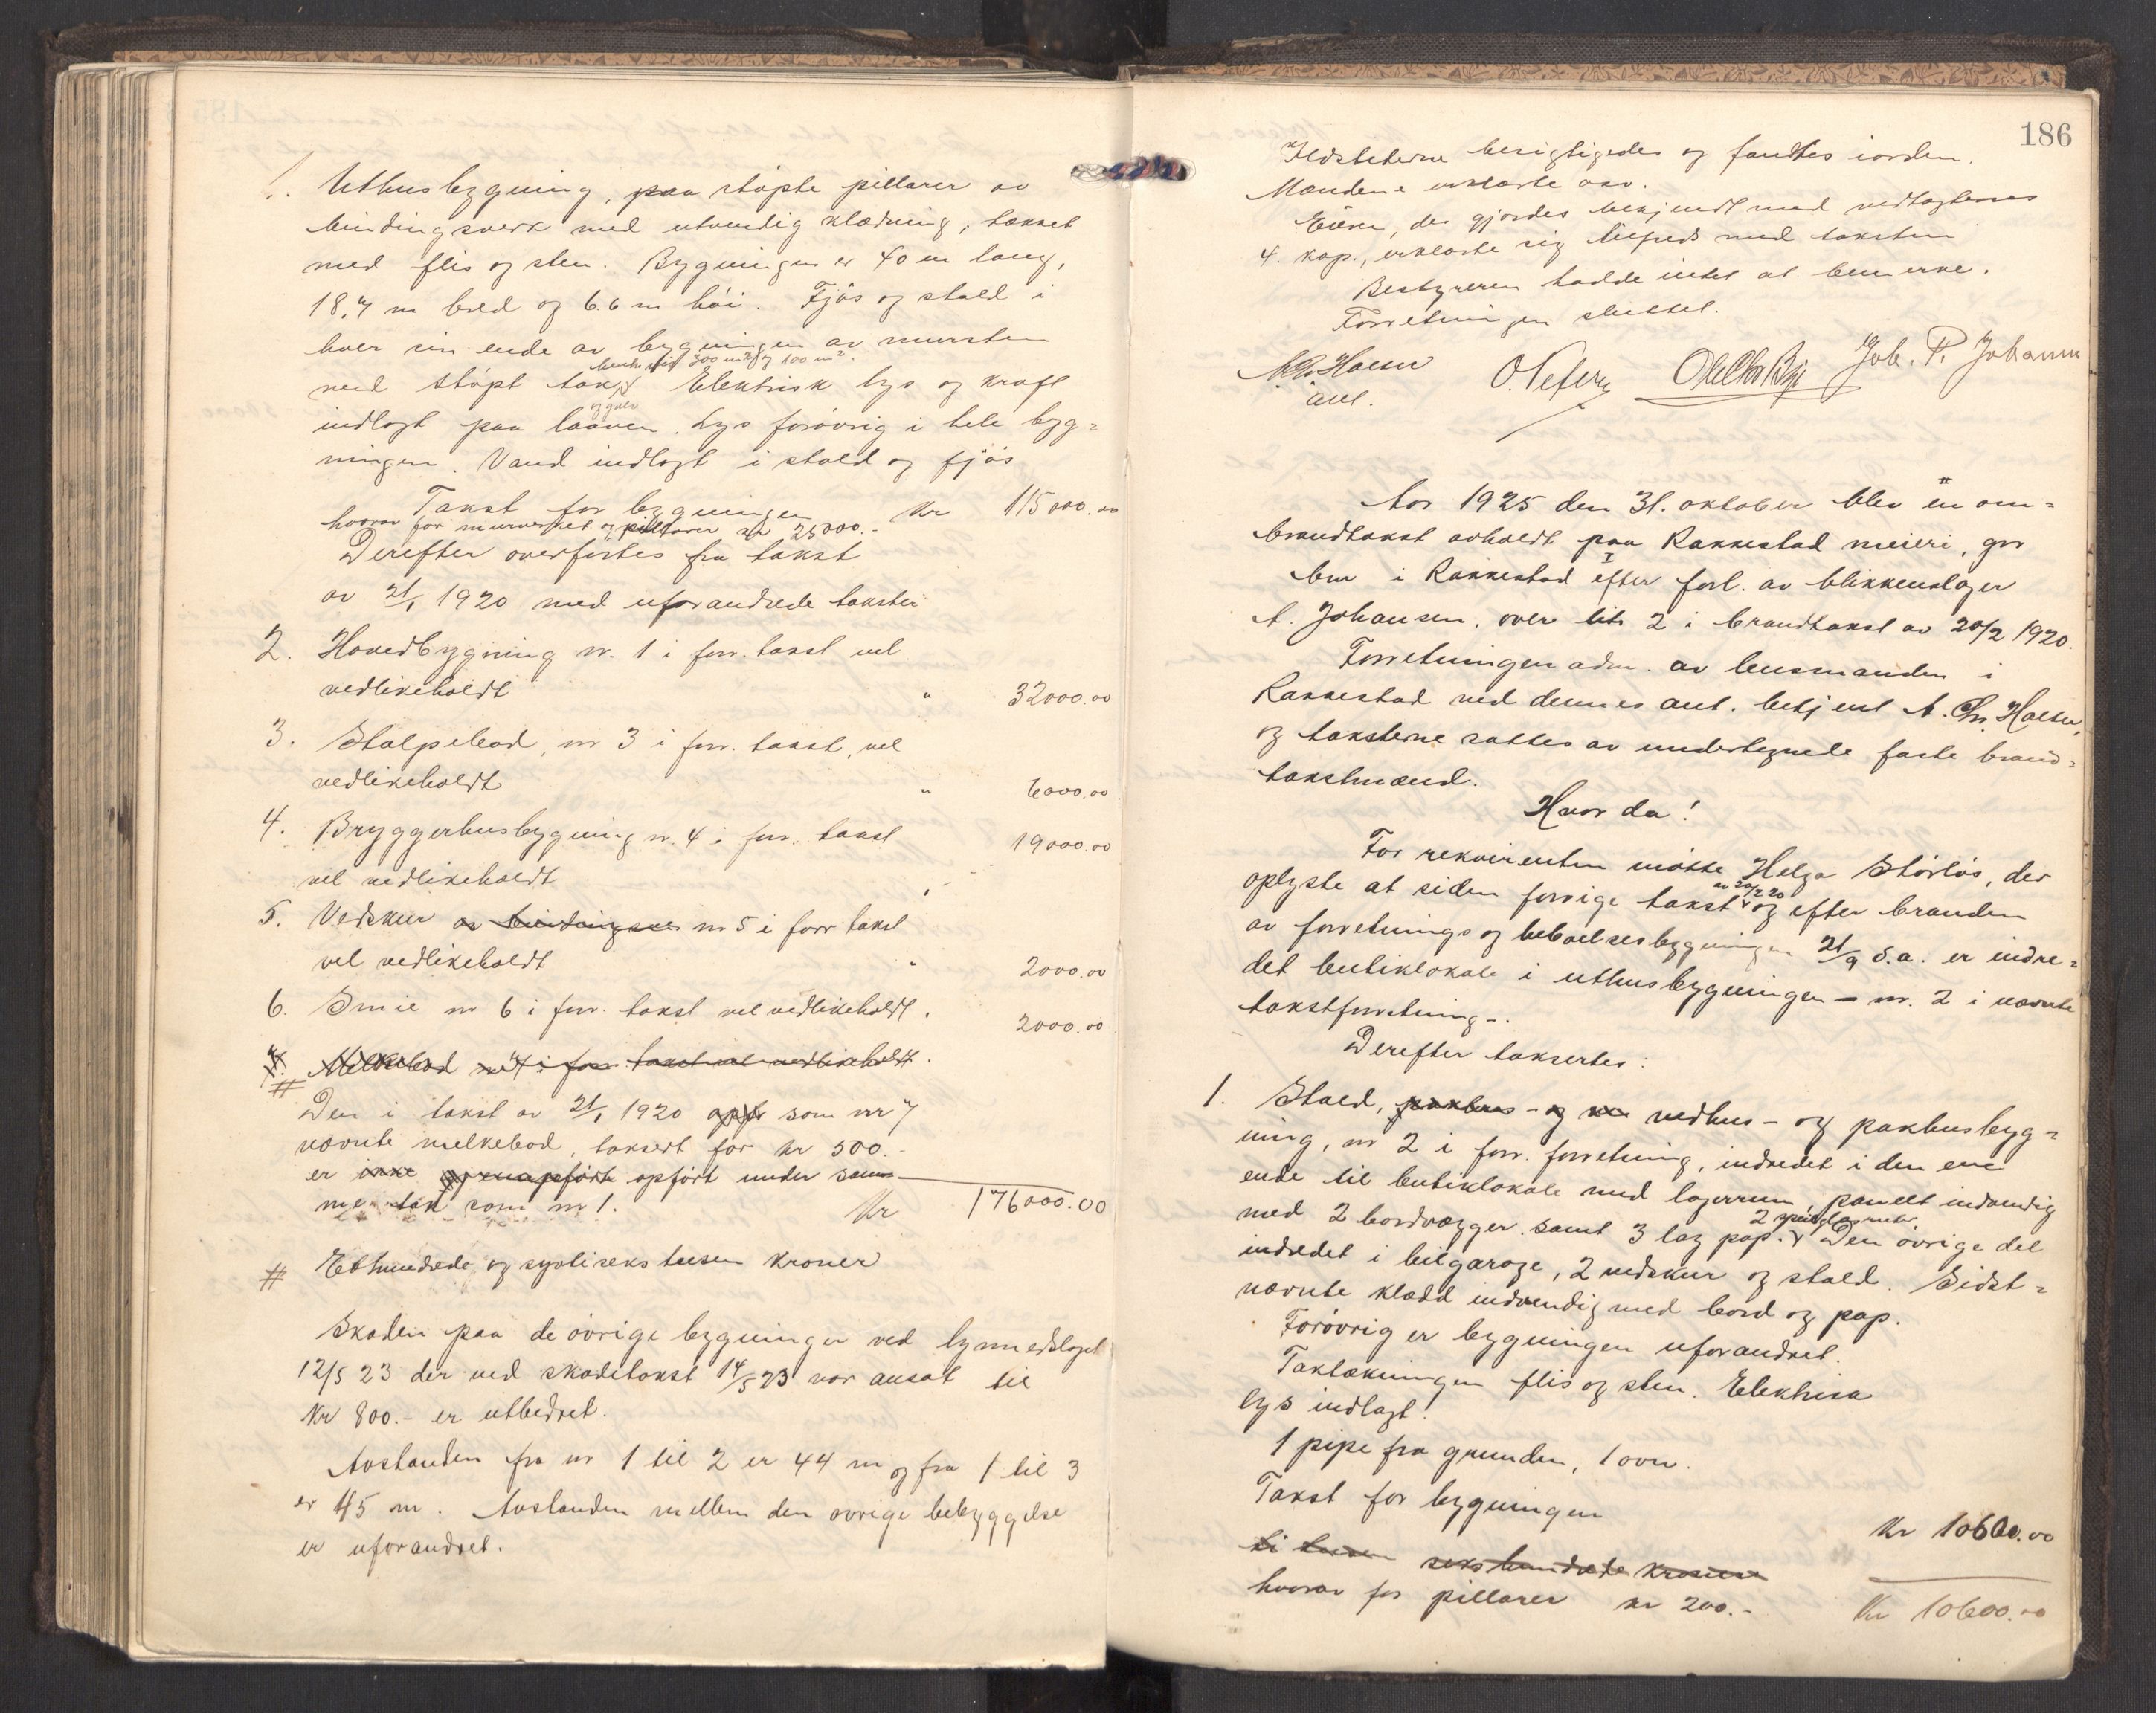 1. Uthusbygning, paa støpte pillarer av
bindingsverk med utvendig klædning, tækket
med flis og sten. Bygningen er 40 m lang,
18,7 m bred og 6.6 m høi. Fjøs og stald i
hver sin ende av bygningen av mursten
henh.vis 300 m² og 100 m².
med støpt tak, Elektrisk lys og kraft
og gulv
indlagt paa laaven. Lys forøvrig i hele byg=
ningen. Vand indlagt i stald og fjøs
Takst for bygningen Kr 115000.00
hvorav for murverket og pillarer kr 25000.-
Derefter overførtes fra takst
av 21/1 1920 med uforandrede takster
2. Hovedbygning nr. 1 i forr. takst vel
vedlikeholdt " 32000.00
3. Stolpebod, nr 3 i forr. takst, vel
vedlikeholdt " 6000.00
4. Bryggerhusbygning nr. 4 i forr. takst 19000.00
vel vedlikeholdt "
5. Vedskur av bindingsver nr 5 i forr takst
vel vedlikeholdt " 2000.00
6. Smie nr 6 i forr. takst vel vedlikeholdt. 2000.00
7. Melkebod nr 7 i forr takst vel vedlikeholdt.
# Den i takst av 21/1 1920 opf som nr 7
nævnte melkebod, taksert for kr 500.-
er ikke opført under sam-
me tak som nr 1. Kr 176000.00
# Ethundrede og syttiseks tusen kroner
Skaden paa de øvrige bygninger ved lynnedslaget
12/5 23 der ved skadetakst 14/5 23 var ansat til
Kr 800.- er utbedret.
Avstanden fra nr 1 til 2 er 44 m og fra 1 til 3
er 45 m. Avstanden mellem den øvrige bebyggelse
er uforandret.
186
Ildstederne besigtigedes og fandtes iorden.
Mændene erklærte osv.
Eieren, der gjordes bekjendt med vedtægternes
4. kap., erklærte sig tilfreds med taksten
Bestyreren hadde intet at bemerke.
Forretningen sluttet.
A. Chr. Holsen O. Ole Chr Bye Joh. P. Johanns
aut.
Aar 1925 den 31. oktober blev en om=
brandtakst avholdt paa Rakkestad meieri, gnr
bnr i Rakkestad efter forl. av blikkenslager
A. Johansen, over litr 2 i brandtakst av 20/2 1920.
Forretningen adm. av lensmanden i
Rakkestad ved dennes aut. betjent A. Chr. Holsen,
og taksterne sattes av undertegnede faste brand=
takstmænd.
Hvor da!
For rekvirenten møtte Helga Störlös, der
av 20/2 20
oplyste at siden forrige takst og efter branden
av forretnings og beboelsesbygningen 21/9 d.a. er indre=
det butiklokale i uthusbygningen – nr. 2 i nævnte
takstforretning -.
Derefter taksertes:
1. Stald, pakhus - og vedhus - og pakhusbyg=
ning, nr 2 i forr. forretning, indredet i den ene
ende til butiklokale med lagerrum, panelt indvendig
2 speilglasruter.
med 2 bordvægger samt 3 lag pap. Den øvrige del
indredet i bilgarage, 2 vedskur og stald. Sidst=
nævnte klædd indvendig med bord og pap.
Forøvrig er bygningen uforandret.
Taktækningen flis og sten. Elektrisk
lys indlagt.
1 pipe fra grunden, 1 ovn.
Takst for bygningen Kr 10600.00
ti tusen sekshundrede kroner
hvorav for pillarer kr 200.- Kr 10600.00